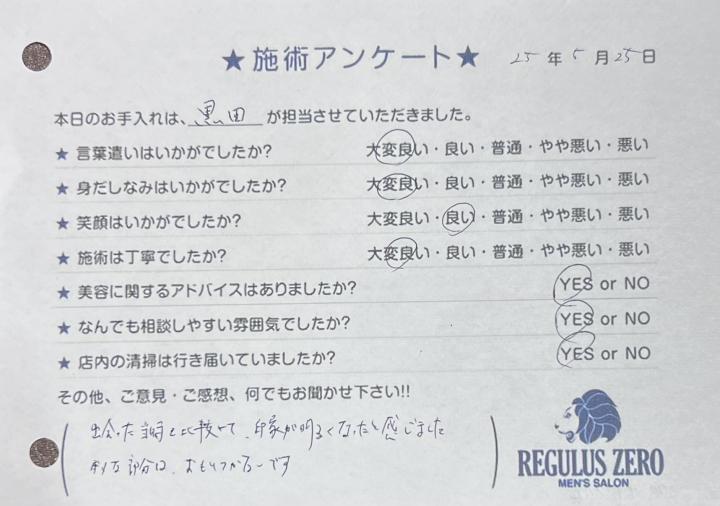 ★施術アンケート★ 25年5月25日
本日のお手入れは、黒田が担当させていただきました。
★ 言葉遣いはいかがでしたか? 大変良い・良い・普通・やや悪い・悪い
★ 身だしなみはいかがでしたか? 大変良い・良い・普通・やや悪い・悪い
★ 笑顔はいかがでしたか? 大変良い・良い・普通・やや悪い・悪い
★ 施術は丁寧でしたか? 大変良い・良い・普通・やや悪い・悪い
★ 美容に関するアドバイスはありましたか? YES or NO
★ なんでも相談しやすい雰囲気でしたか? YES or NO
★ 店内の清掃は行き届いていましたか? YES or NO
その他、ご意見・ご感想、何でもお聞かせ下さい!!
出会った当時と比較して、印象が明るくなったと感じました
部分は、です
REGULUS ZERO
MEN'S SALON